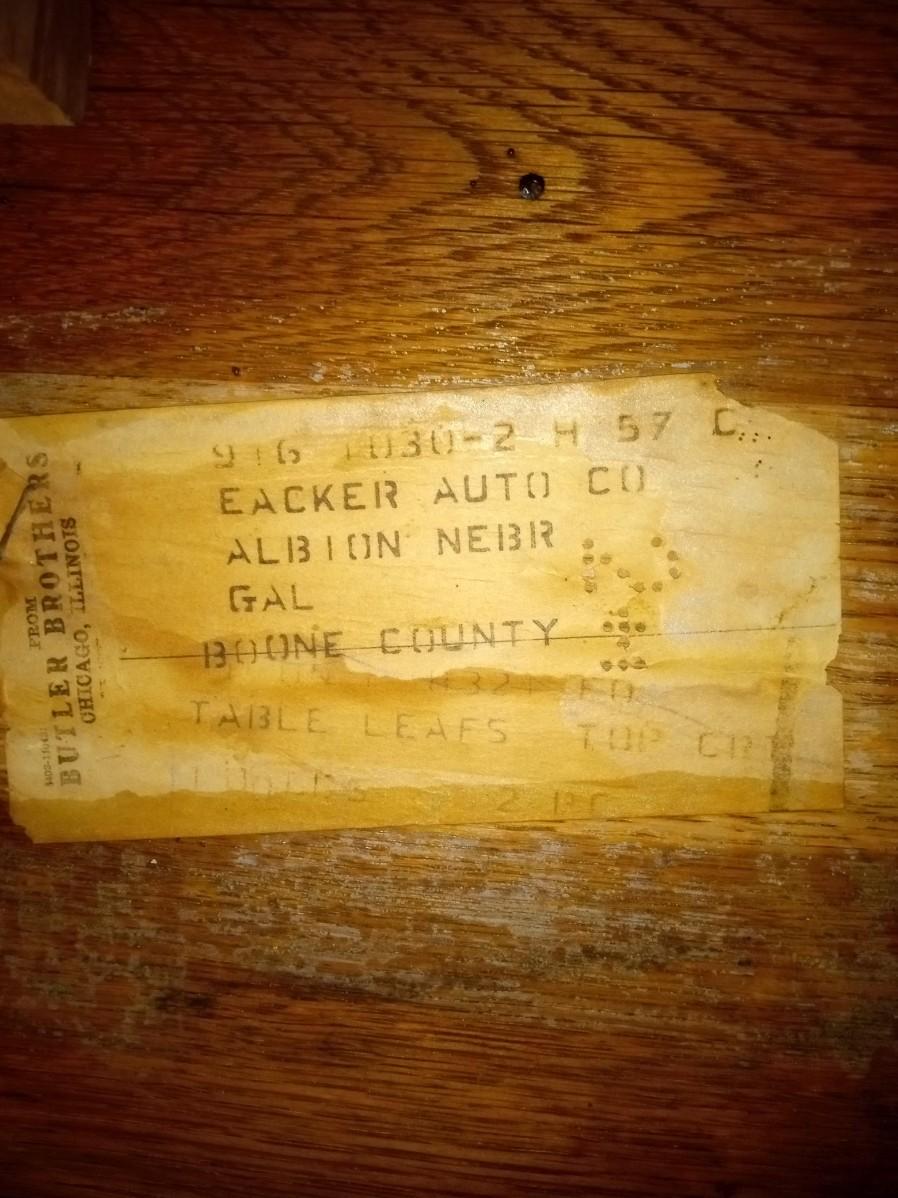 FROM
BUTLER BROTHERS
CHICAGO, ILLINOIS
916 1030-2 H 57 C
EACKER AUTO CO
ALBION NEBR
GAL
BOONE COUNTY
TABLE LEAFS TOP
2 PC